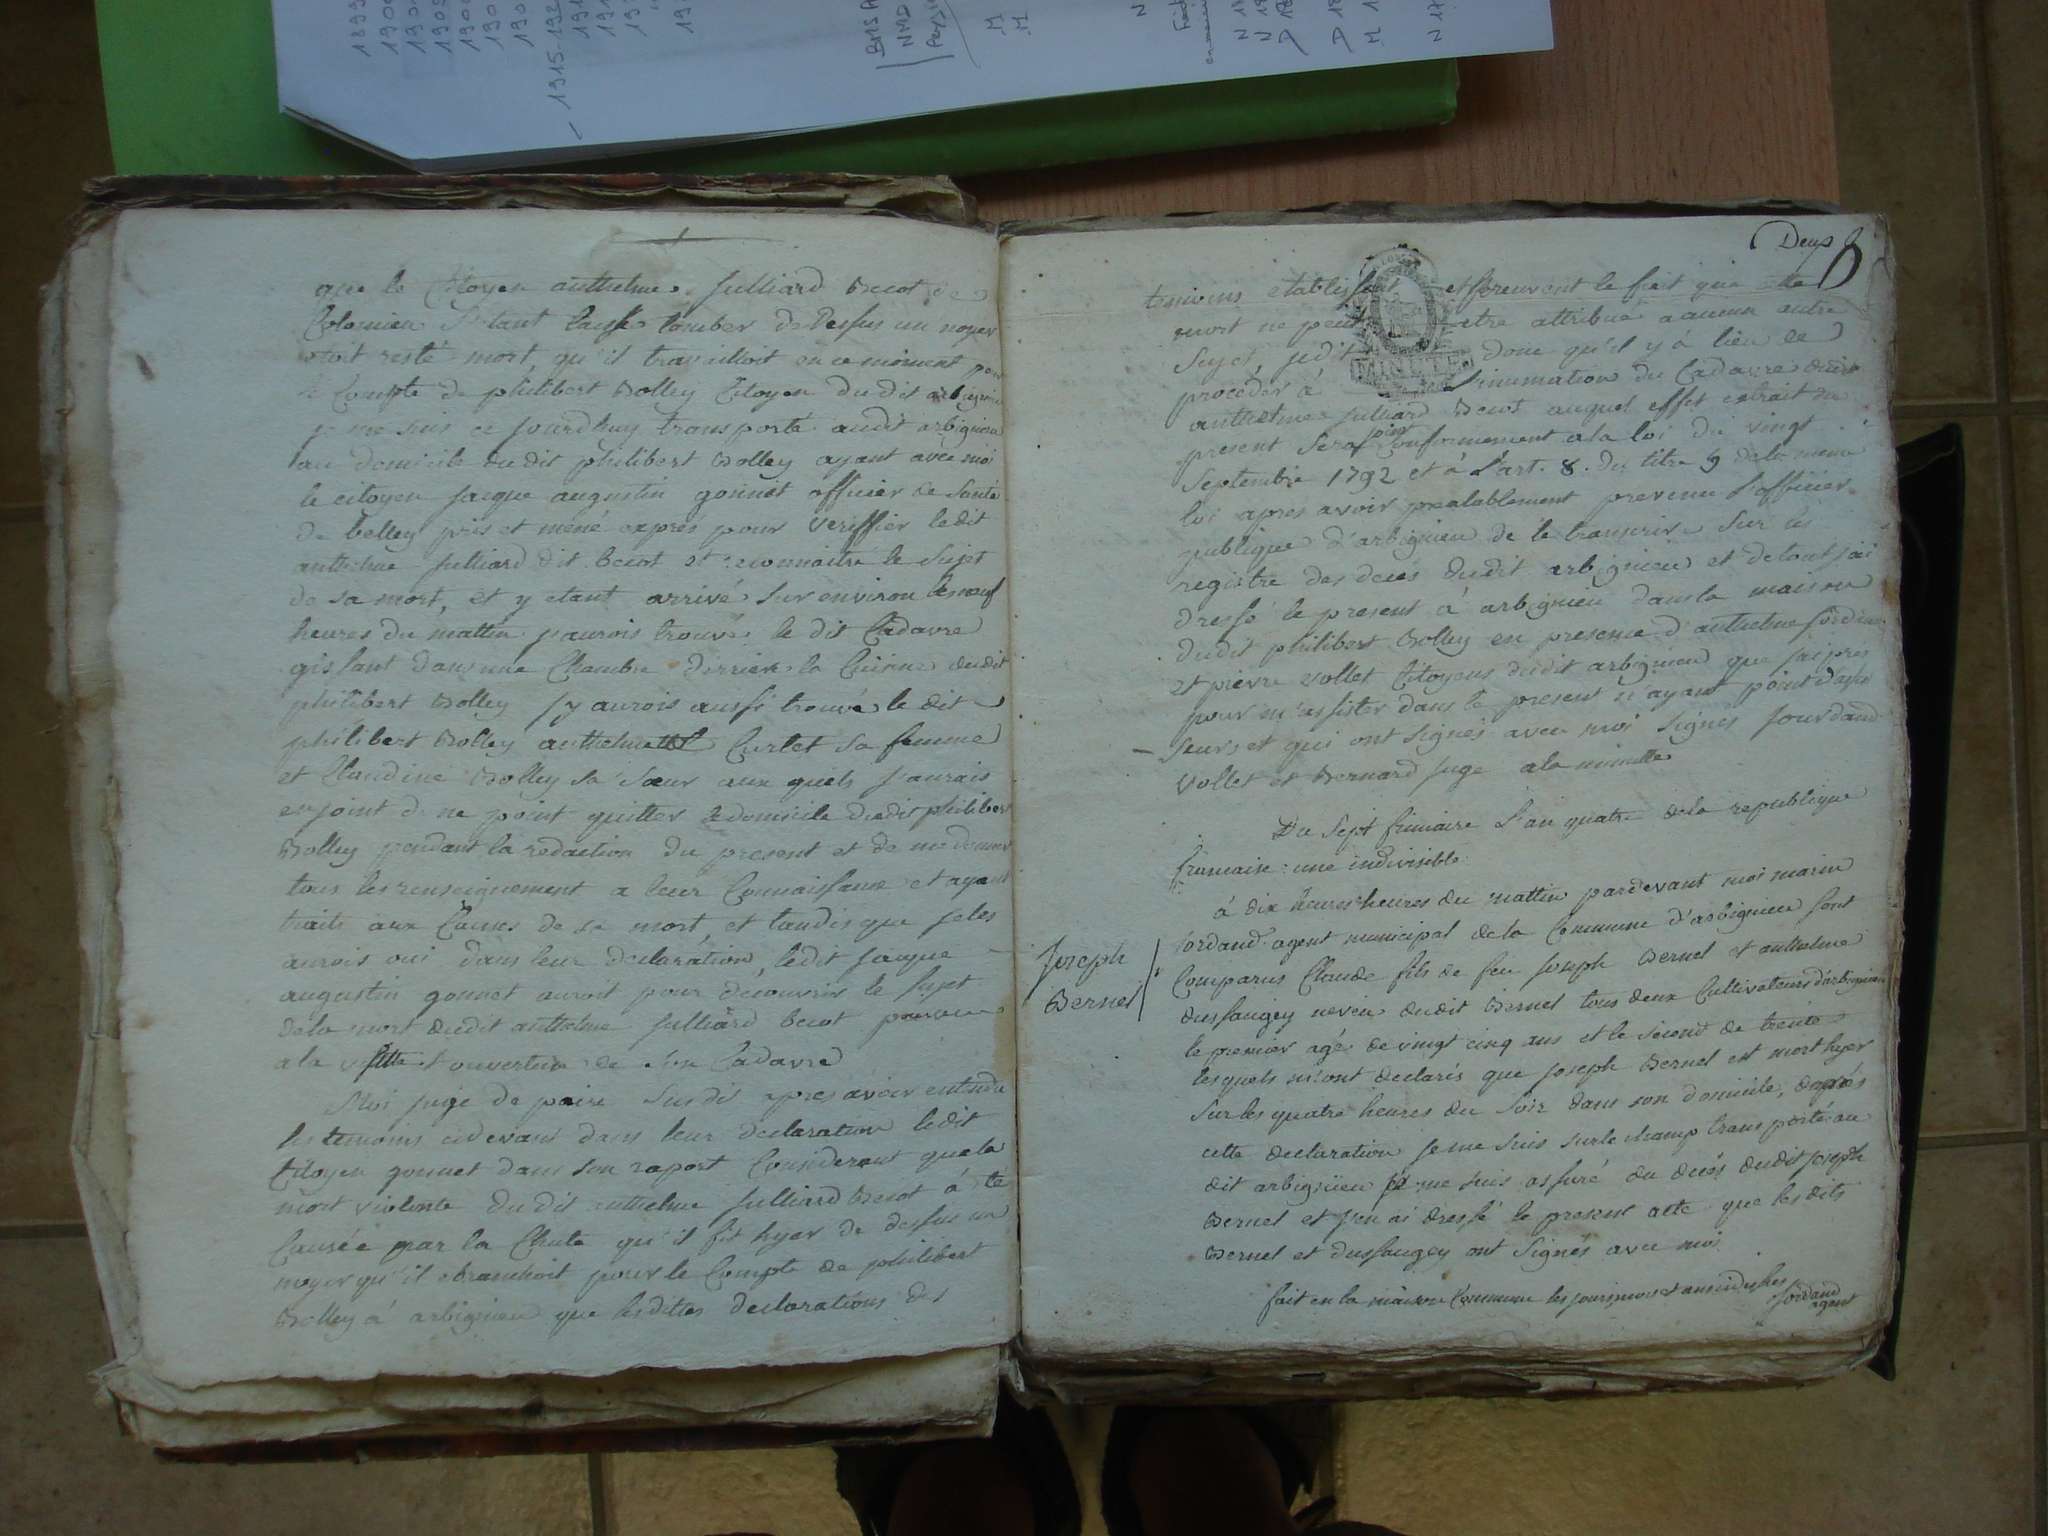 que le Citoyen anthelme Julliard Becot de
Colomieu S'etant laissé tomber de dessus un noyer
etoit resté mort, qu'il travailloit en ce moment pour
le Compte de philibert Bolley Citoyen du dit arbignieu
je me suis ce jourdhuy transporté audit arbignieu
au domicile du dit philibert Bolley ayant avec moi
le citoyen jacque augustin gonnet officier de Santé
de belley pris et mené exprès pour veriffier ledit
anthelme Julliard dit becot et reconnaitre le Sujet
de sa mort, et y etant arrivé Sur environ les neuf
heures du mattin jaurois trouvé le dit Cadavre
gissant dans une Chambre derriere la Cuisine dudit
philibert Bolley j'y aurois aussi trouvé le dit
philibert Bolley anthelmette Curlet sa femme
et Claudine Bolley sa Sœur aux quels jaurais
enjoint de ne point quitter le domicile dudit philibert
Bolley pendant la redaction du present et de me donner
tous les renseignement a leur Connaissance et ayant
traits aux Causes de sa mort, et tandis que je les
aurois oui dans leur declaration, ledit jacque
augustin gonnet auroit pour decouvrir le Sujet
de la mort dudit anthelme Julliard becot
a la visitte et ouverture de son Cadavre
Moi juge de paix Susdit apres avoir entendu
les temoins cidevant dans leur declaration ledit
Citoyen gonnet dans son raport Considerant que la
mort violente du dit anthelme Julliard Becot à été
Causée par la Chute qu'il fit hyer de dessus un
noyer qu'il ebranchoit pour le Compte de philibert
Bolley à arbignieu que lesdittes declarations des
Deux
8
temoins etablissent et prouvent le fait que
mort ne peut etre attribué a aucun autre
Sujet, donc qu'il y à lieu de
procéder à l'inumation du Cadavre dudit
anthelme Julliard Becot auquel effet extrait du
present Sera pris Conformement a la loi du vingt
Septembre 1792 et à l'art. 8. du titre 9 de la meme
loi apres avoir prealablement prevenu l'officier
publique d'arbignieu de le transcrire Sur les
registre des decés dudit arbignieu et de tout j'ai
dressé le present à arbignieu dans la maison
dudit philibert Bolley en presence d'anthelme
et pierre vollet Citoyens dudit arbignieu que j'ai pris
pour m'assister dans le present n'ayant point d'asses
seurs et qui ont Signés avec moi Signés Jourdand
Vollet et Bernard juge a la minutte
Du Sept frimaire l'an quatre de la republique
francaise une indivisible
à dix heures heures du mattin pardevant moi marin
Jordand agent municipal de la Commune d'arbignieu Sont
Joseph
Bernel
Comparus Claude fils de feu Joseph Bernel et anthelme
dussaugey neveu dudit Bernel tous deux Cultivateurs d'arbignieu
le premier agé de vingt cinq ans et le second de trente
lesquels m'ont declarés que joseph Bernel est mort hyer
Sur les quatre heures du Soir dans son domicile, daprés
cette declaration je me suis sur le champ transporté au
dit arbignieu je me suis assuré du decés dudit joseph
Bernel et j'en ai dressé le present acte que les dits
Bernel et dussaugey ont Signés avec moi
fait en la maison Commune les jours mois et an sus dits
Jordand
agent
1915-192
BMSA
NMD
M
M
N
N 17